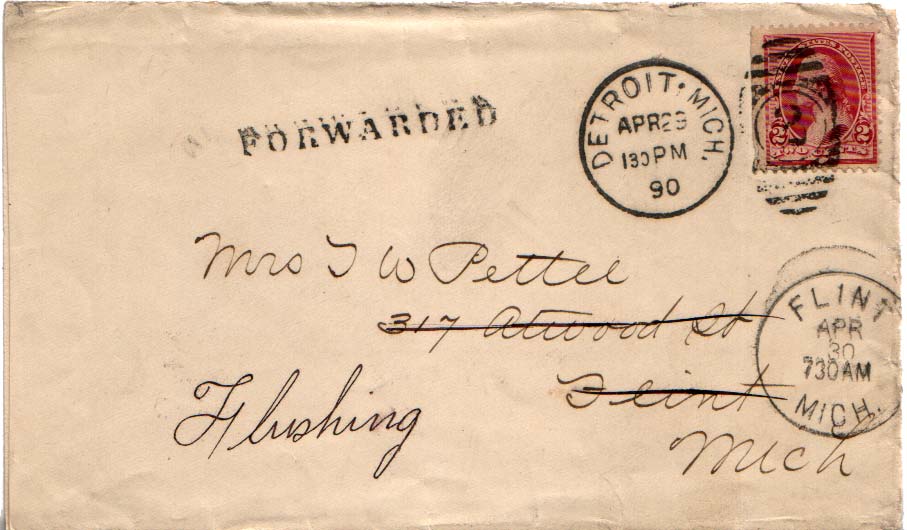 FORWARDED
DETROIT. MICH.
APR 29
130 PM
90
2 2
Mrs T W Pettee
317 Atwood St
Flint
Flushing
Mich
FLINT
APR
30
730AM
MICH.